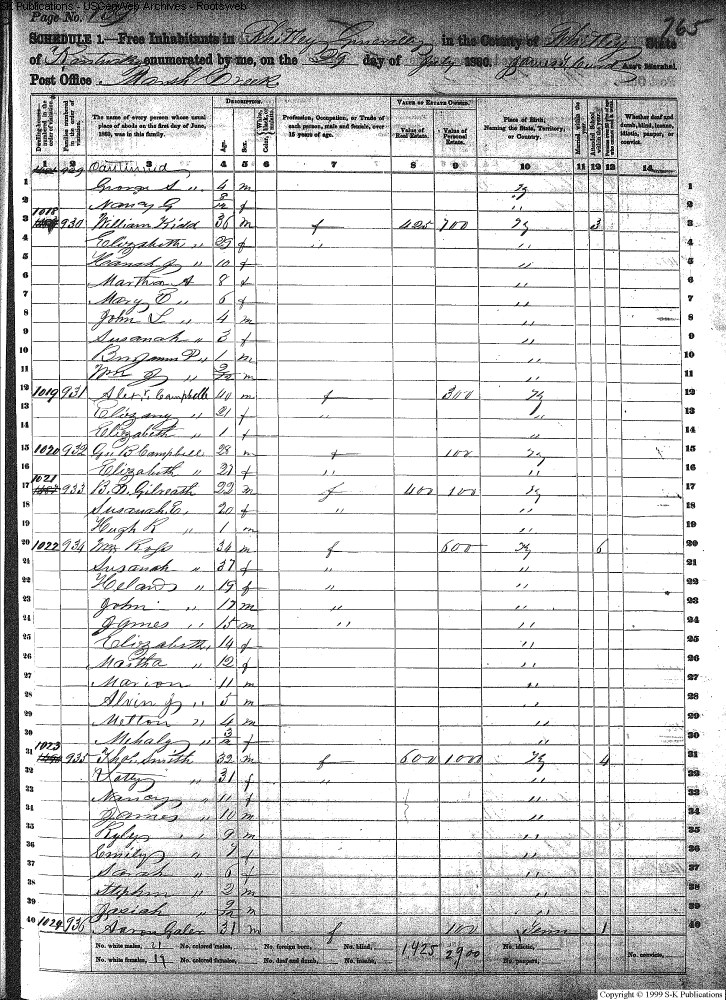 S-K Publications - USGenWeb Archives - Rootsweb
Page No. 109
765
SCHEDULE 1.—Free Inhabitants in Whitley in the County of Whitley State
of Kentucky enumerated by me, on the 29 day of July 1860. Ass't Marshal.
Post Office Marsh Creek
Dwelling-houses numbered in the order of visitation.
Families numbered in the order of visitation.
The name of every person whose usual place of abode on the first day of June, 1860, was in this family.
DESCRIPTION.
Age.
Sex.
Color, White, black, or mulatto.
Profession, Occupation, or Trade of each person, male and female, over 15 years of age.
VALUE OF ESTATE OWNED.
Value of Real Estate.
Value of Personal Estate.
Place of Birth, Naming the State, Territory, or Country.
Married within the year.
Attended School within the year.
Whether deaf and dumb, blind, insane, idiotic, pauper, or convict.
1 2 3 4 5 6 7 8 9 10 11 12 13 14
929 Continued
1 George S " 4 m Ky 1
2 Nancy G f " 2
3 1018 930 William Kidd 36 m f 425 700 Ky 3 3
4 Elizabeth " 29 f " " 4
5 " 10 f " 5
6 Martha A 8 f " 6
7 Mary E " 6 f " 7
8 John L " 4 m " 8
9 Susanah " 3 f " 9
10 Benjamin P " 1 m " 10
11 Wm J " m " 11
12 1019 931 Alexr Campbell 40 m f 300 Ky 12
13 " 21 f " " 13
14 Elizabeth " 1 f " 14
15 1020 932 Campbell 23 m f 100 Ky 15
16 Elizabeth " 27 f " " 16
17 1021 933 B. D. Gilreath 22 m f 400 100 Ky 17
18 Susanah E. 20 f " " 18
19 Hugh R " 1 m " 19
20 1022 934 Wm Ross 34 m f 600 Ky 6 20
21 Susanah " 37 f " " 21
22 " 19 f " " 22
23 John " 17 m " " 23
24 James " 15 m " " 24
25 Elizabeth " 14 f " 25
26 Martha " 12 f " 26
27 Marion 11 m " 27
28 Alvin J " 5 m " 28
29 Melton " 4 m " 29
30 Mihaly " f " 30
31 1023 935 Thos Smith 32 m f 600 1000 Ky 4 31
32 " 31 f " " 32
33 Nancy " 11 f " 33
34 James " 10 m " 34
35 Ryly " 9 m " 35
36 Emily " 7 f " 36
37 Sarah " 6 f " 37
38 Stephen " 2 m " 38
39 Josiah " m " 39
40 1024 936 Aaron Galer 31 m f 100 Tenn 1 40
No. white males, 21 No. colored males, No. foreign born, No. blind, 1425 2900 No. idiotic,
No. white females, 19 No. colored females, No. deaf and dumb, No. insane, No. paupers, No. convicts,
Copyright © 1999 S-K Publications